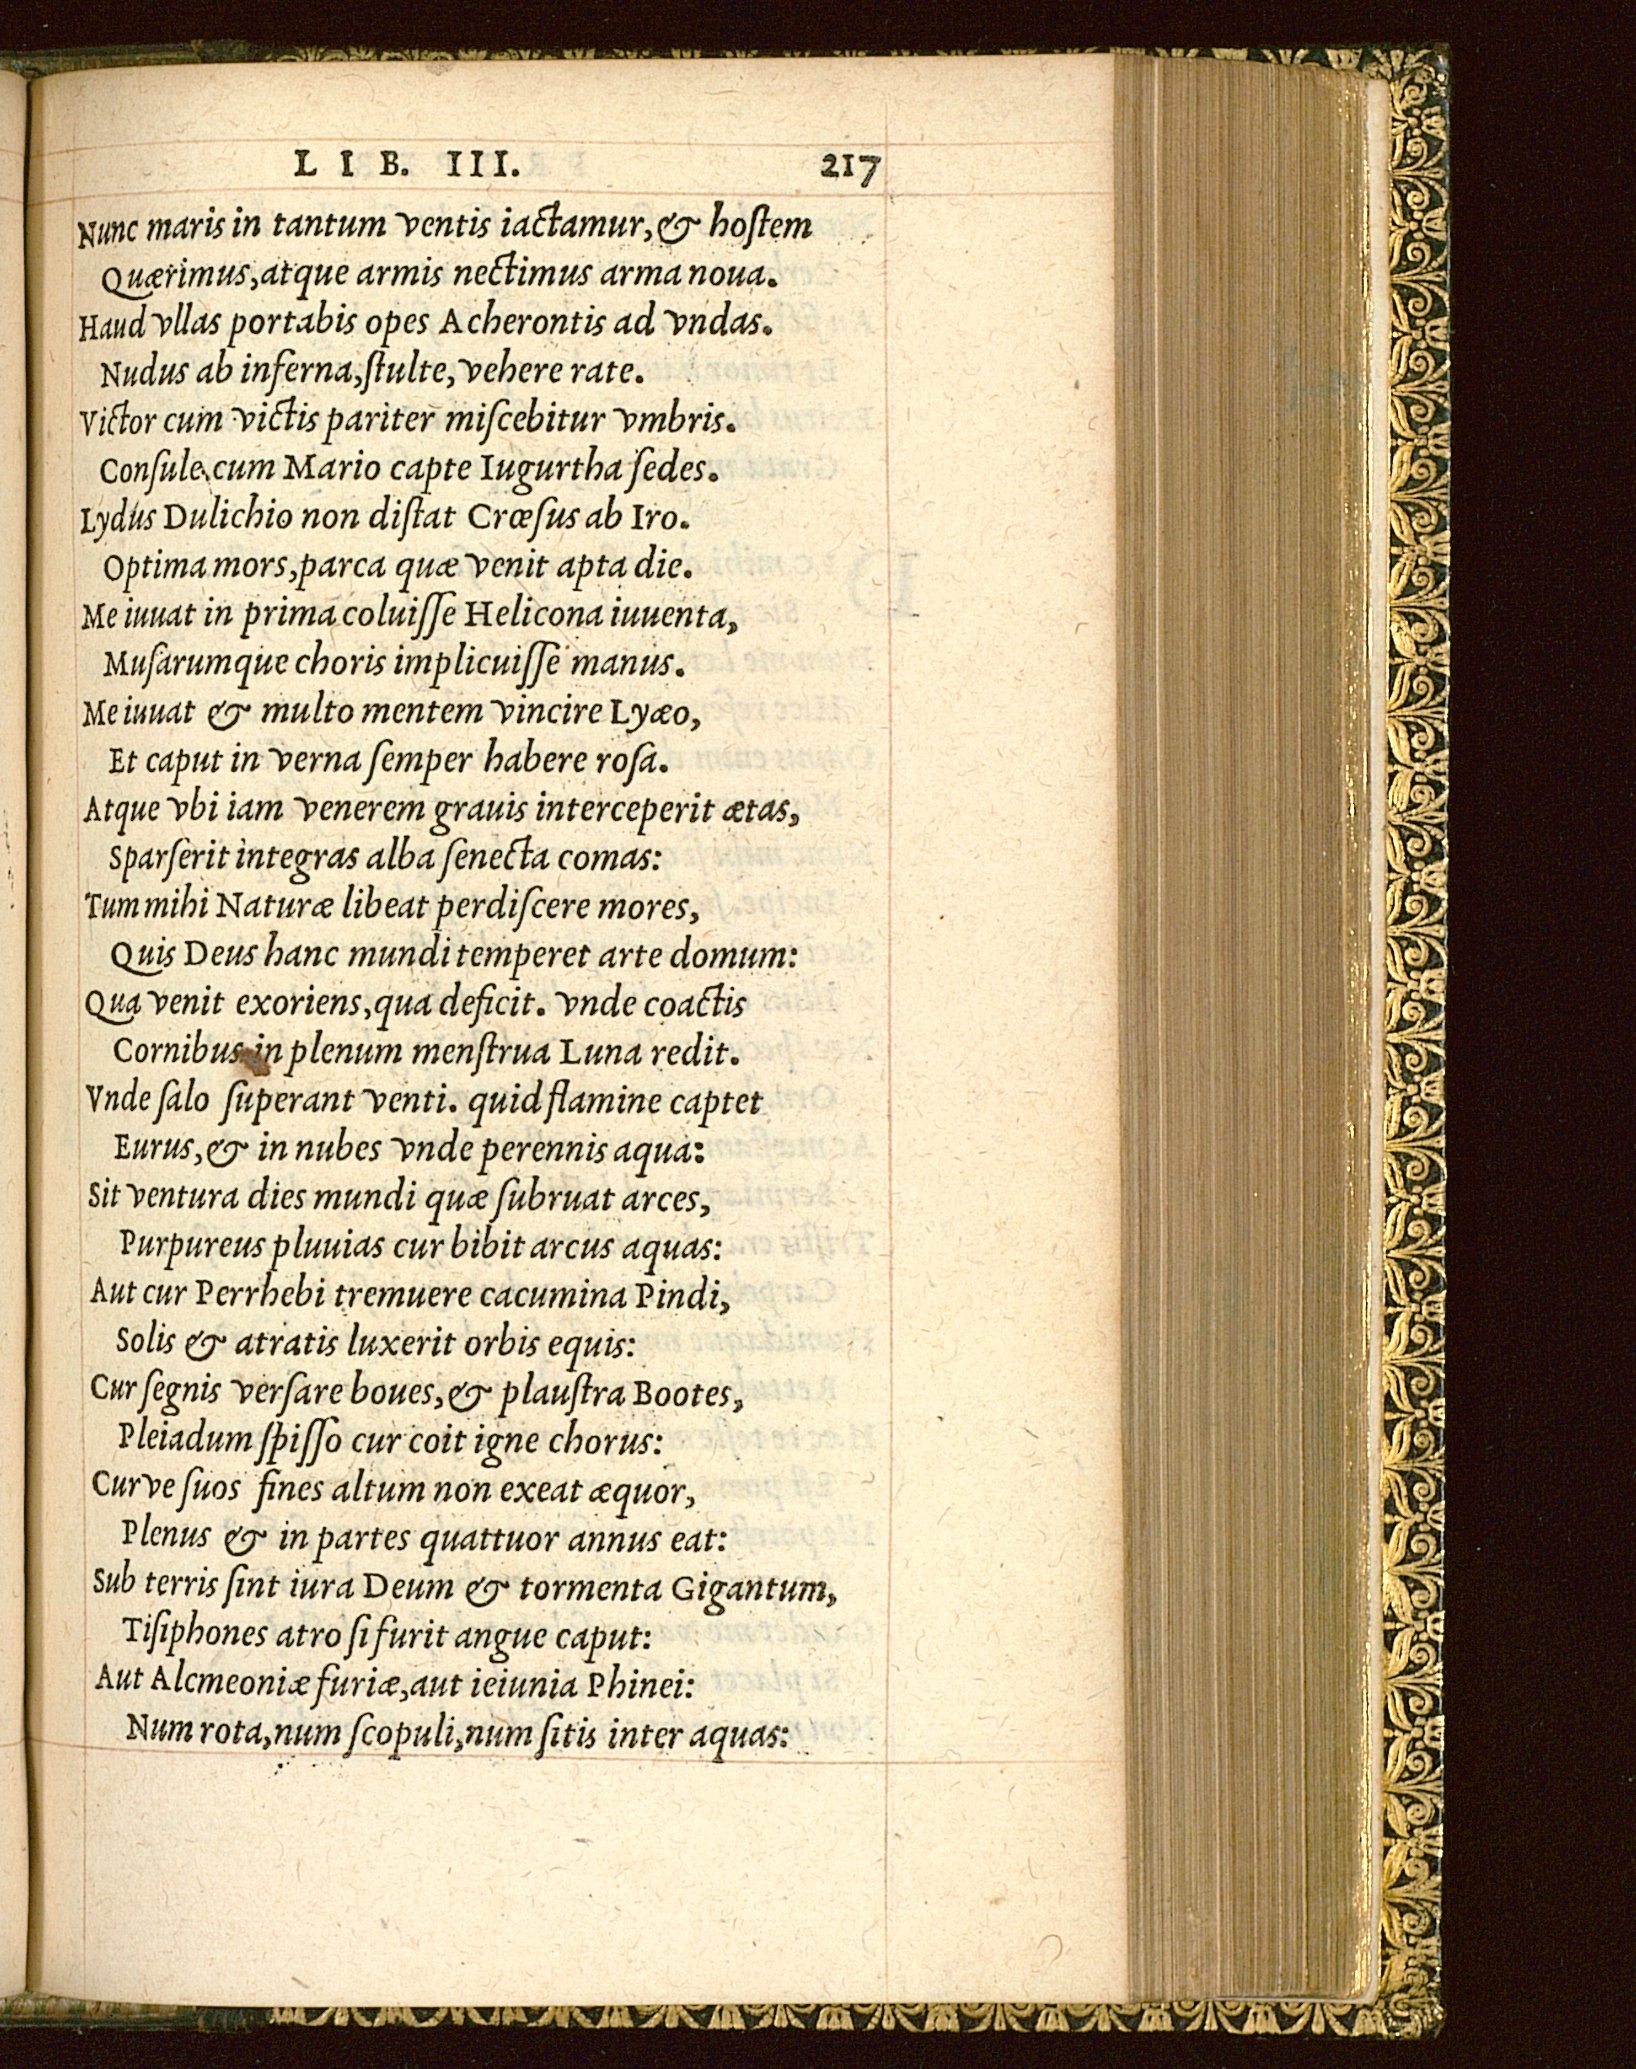 LIB. III. 217
Nunc maris in tantum ventis iactamur, & hoſtem
Quærimus, atque armis nectimus arma noua.
Haud vllas portabis opes Acherontis ad vndas.
Nudus ab inferna, ſtulte, vehere rate.
Victor cum victis pariter miſcebitur vmbris.
Conſule cum Mario capte Iugurtha ſedes.
Lydus Dulichio non diſtat Crœſus ab Iro.
Optima mors, parca quæ venit apta die.
Me iuuat in prima coluiſſe Helicona iuuenta,
Muſarumque choris implicuiſſe manus.
Me iuuat & multo mentem vincire Lyæo,
Et caput in verna ſemper habere roſa.
Atque vbi iam venerem grauis interceperit ætas,
Sparſerit integras alba ſenecta comas:
Tum mihi Naturæ libeat perdiſcere mores,
Quis Deus hanc mundi temperet arte domum:
Qua venit exoriens, qua deficit. vnde coactis
Cornibus in plenum menſtrua Luna redit.
Vnde ſalo ſuperant venti. quid flamine captet
Eurus, & in nubes vnde perennis aqua:
Sit ventura dies mundi quæ ſubruat arces,
Purpureus pluuias cur bibit arcus aquas:
Aut cur Perrhebi tremuere cacumina Pindi,
Solis & atratis luxerit orbis equis:
Cur ſegnis verſare boues, & plauſtra Bootes,
Pleiadum ſpiſſo cur coit igne chorus:
Curve ſuos fines altum non exeat æquor,
Plenus & in partes quattuor annus eat:
Sub terris ſint iura Deum & tormenta Gigantum,
Tiſiphones atro ſi furit angue caput:
Aut Alcmeoniæ furiæ, aut ieiunia Phinei:
Num rota, num ſcopuli, num ſitis inter aquas: